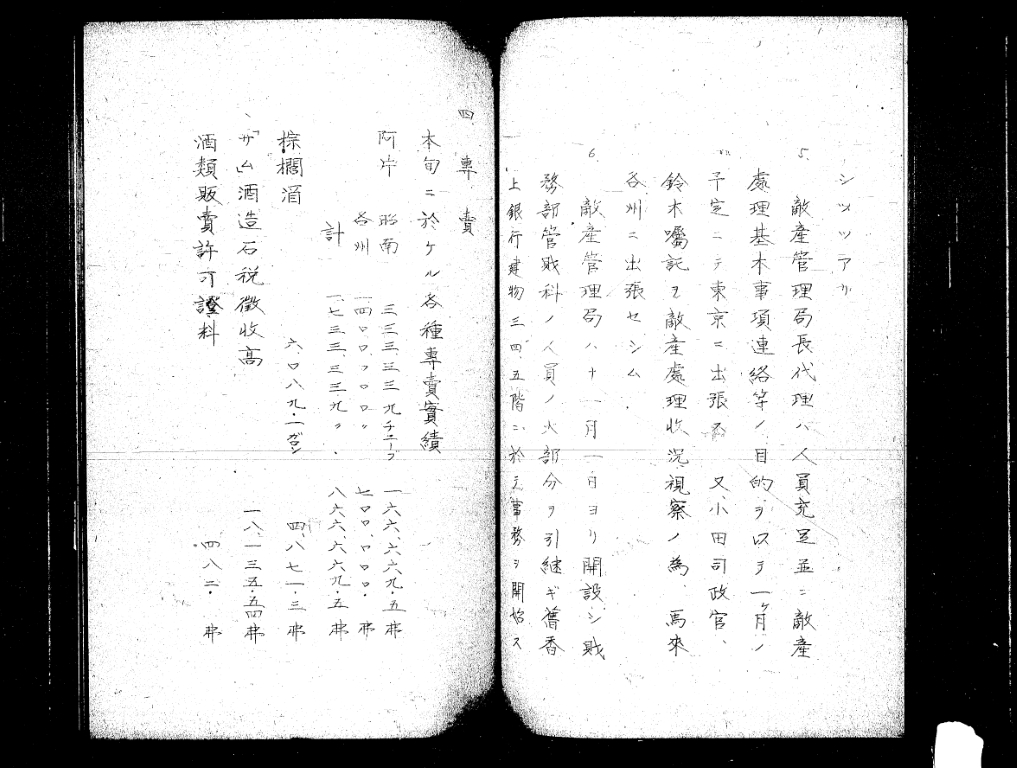 シツツアリ
5. 敵産管理局長代理ハ人員充足並ニ敵産
處理基本事項連絡等ノ目的ヲ以テ一ヶ月ノ
予定ニテ東京ニ出張ス 又小田司政官、
鈴木囑託ヲ敵産處理狀況視察ノ為、馬來
各州ニ出張セシム
6. 敵産管理局ハ十一月一日ヨリ開設シ財
務部管財科ノ人員ノ大部分ヲ引継ギ舊香
上銀行建物三、四、五階ニ於テ事務ヲ開始ス
四 專賣
本旬ニ於ケル各種專賣實績
阿片 昭南 三三三、三三九チューブ 一六六、六六九・五弗
各州 一四〇〇、〇〇〇〃 七〇〇、〇〇〇・弗
計 一、七三三、三三九〃 八六六、六六九・五弗
棕櫚酒 六、〇八九・一ガロン 四、八七一・三弗
「サムサム」酒造石税徵收高 一八、一三五・五四弗
酒類販賣許可證料 四八二・弗